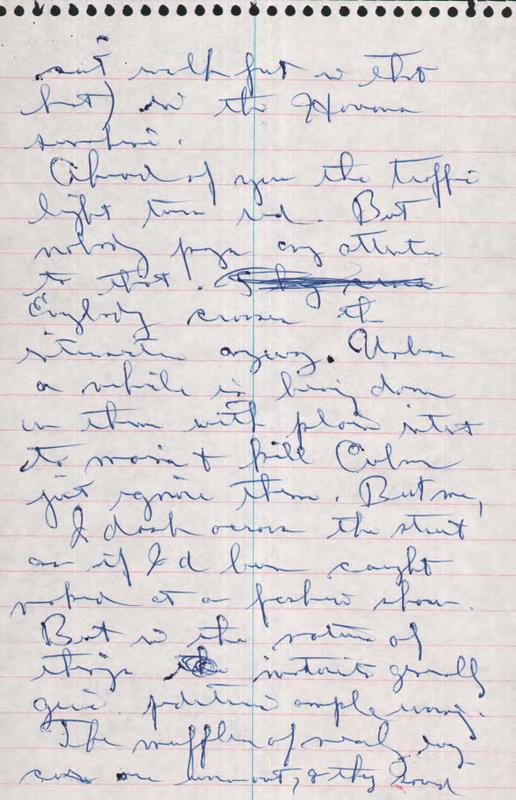 can't walk fast in that
heat) in the Havana
sunshine.
Ahead of you the traffic
light turns red. But
nobody pays any attention
to that. They cross
Everybody crosses the
intersection anyway. Unless
a vehicle is being driven
in them with plain intent
to maim & kill Cubans
just ignore them. But me,
I dash across the street
as if I'd been caught
naked at a fashion show.
But in the nature of
things the motorists generally
give pedestrians ample warning.
The mufflers of nearly every
car are worn out, & they sound